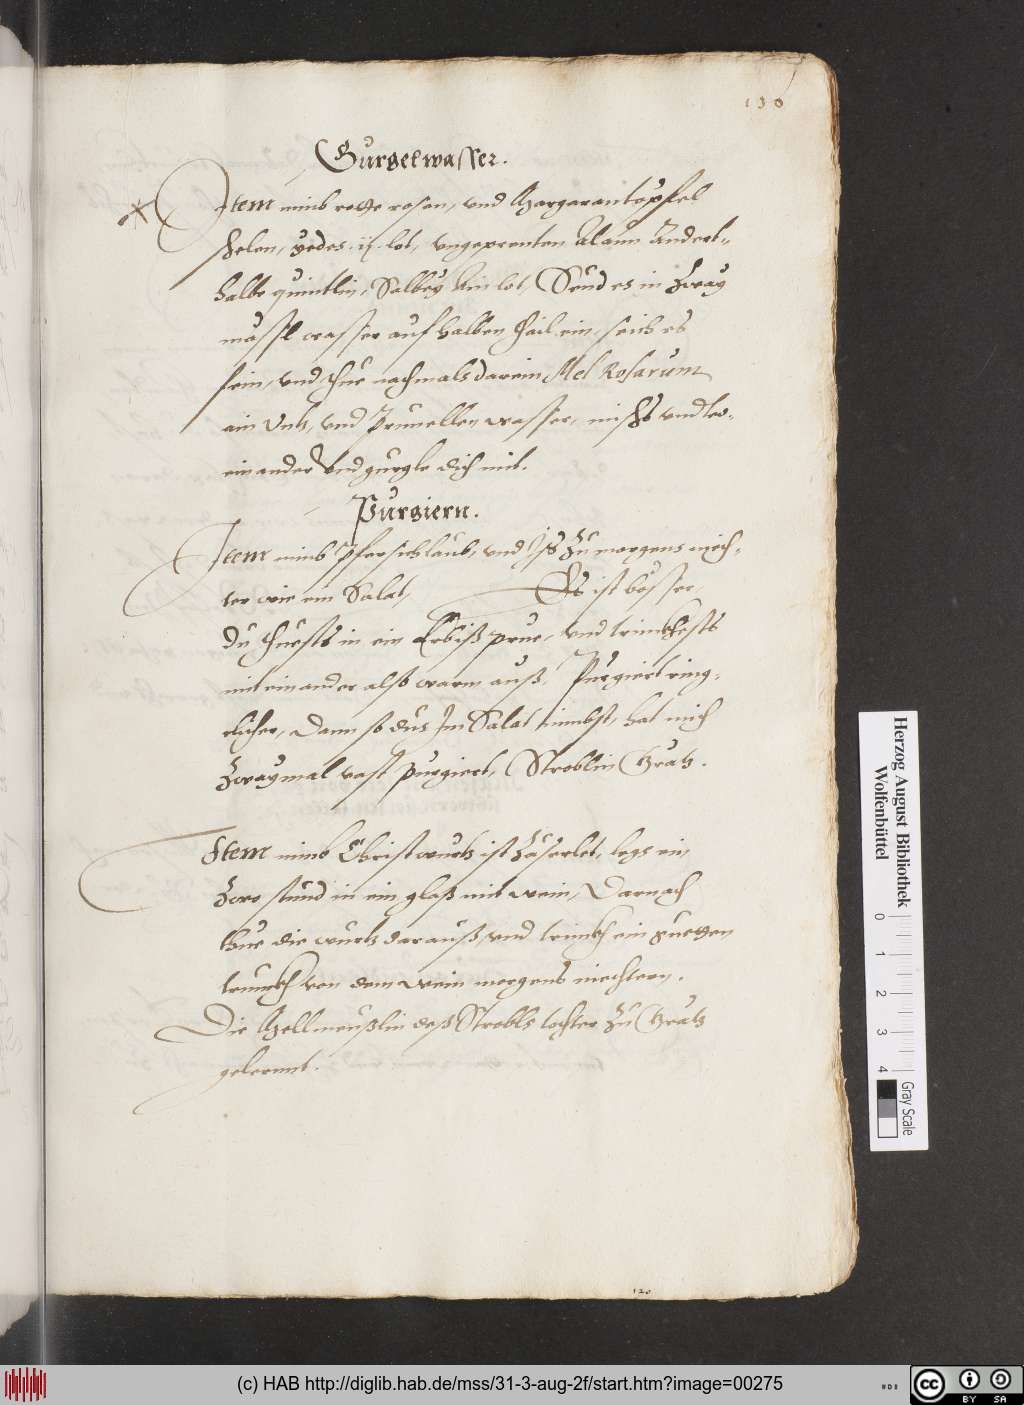 130
Gurgelwasser.
Item nimb rotte rosen, und Margarantöpfel
schelen, yedes .ij. lot, ungeprenten Alaun Andert-
halbs quintlin, Salbey Ain lot, Seud es in Zway
maßl wasser auf halben thail ein, seich es
fein, und thue nachmals darein Mel Rosarum
ain Untz, und Prunellen wasser, mischs under-
einander und gurgle dich mit.
Purgiern.
Item nimb Pfersichlaub, und Jß zu morgens niech-
ter wie ein Salat, Es ist besser
du thuests in ein Erbiß prue, und trinckhests
mit einander also warm auß, Purgiert ring-
licher, Dann so dus Im Salat nimbst, hat mich
Zwaymal vast purgiert, Stroblin Grätz.
Item nimb Christwurtz ist Zäserlet, legs ein
Zwo stund in ein glaß mit wein, Darnach
thue die wurtz darauß, und trinckh ein guetten
trunckh von dem wein morgens niechtern.
Die deß Strobls tochter Zu Grätz
gelernnt.
120
Herzog August Bibliothek
Wolfenbüttel
0 1 2 3 4
Gray Scale
(c) HAB http://diglib.hab.de/mss/31-3-aug-2f/start.htm?image=00275
cc BY SA